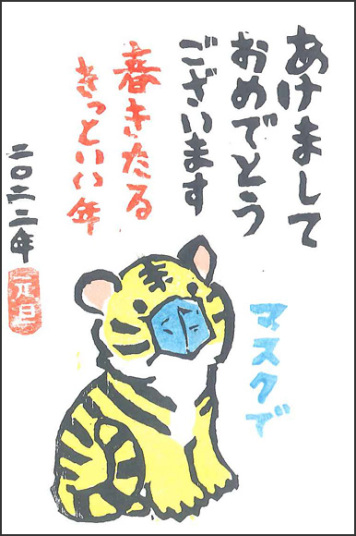 あけまして
おめでとう
ございます
春きたる
きっといい年
二〇二二年
元旦
マスクで